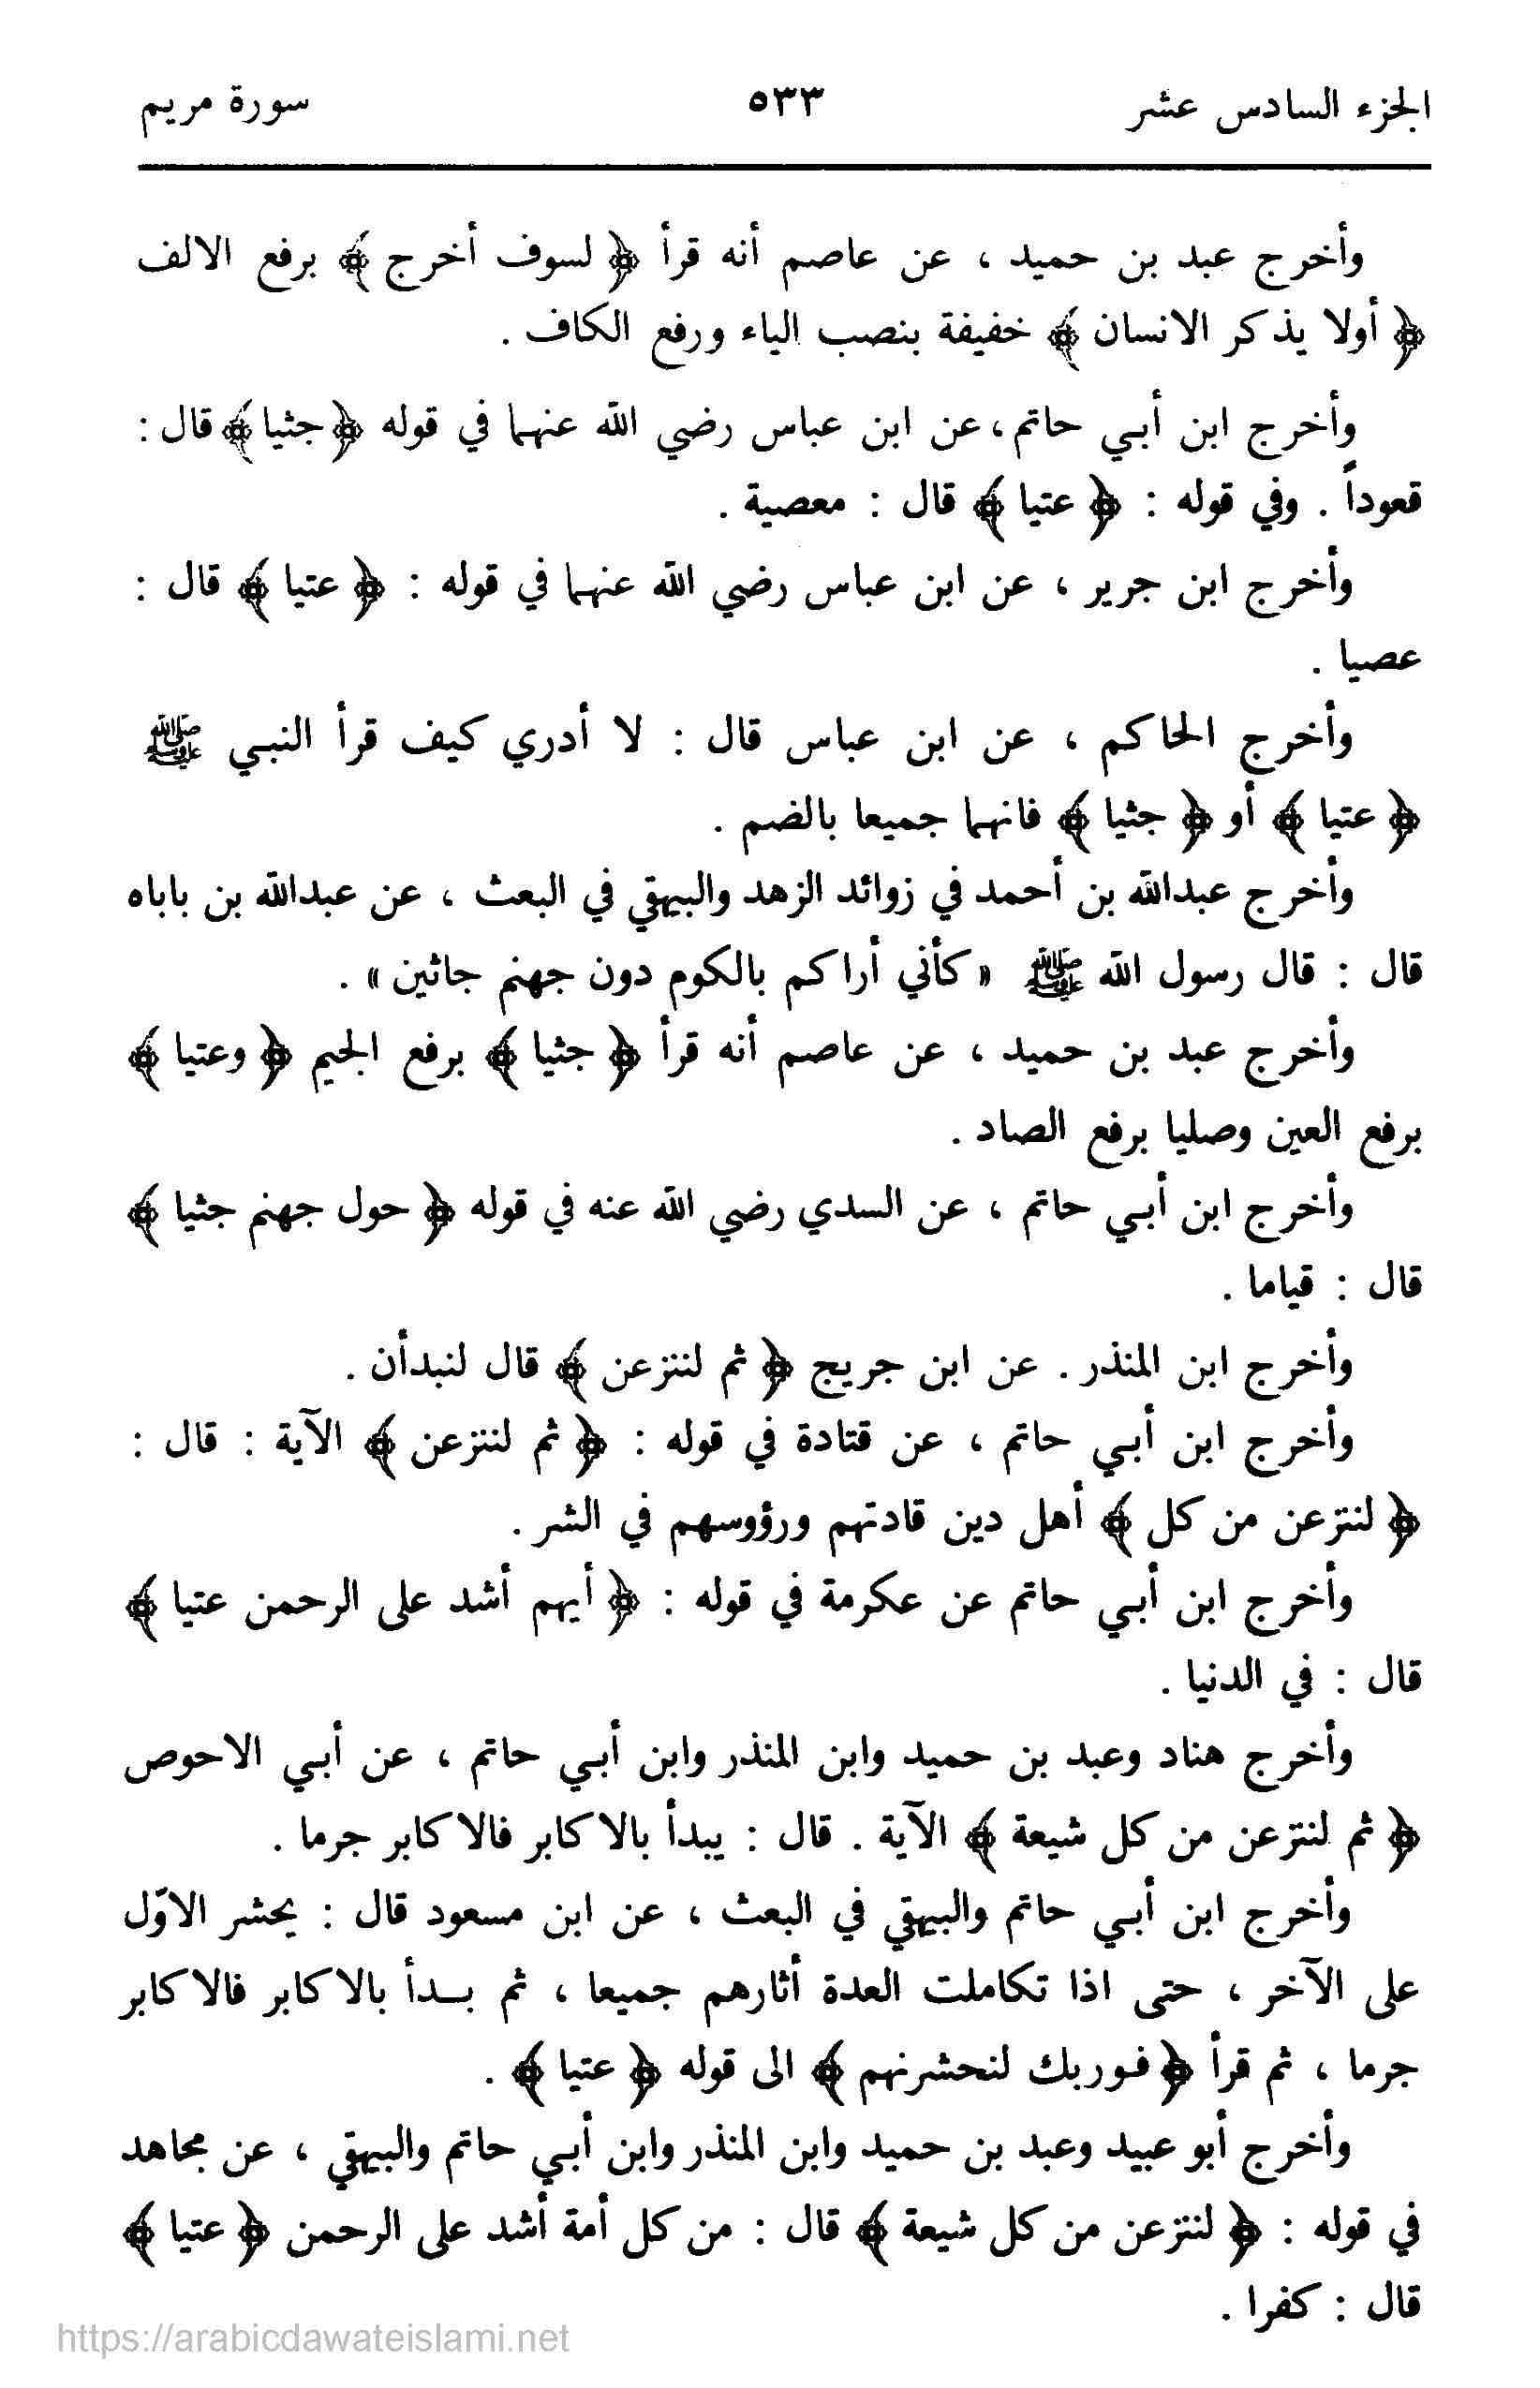 الجزء السادس عشر ٥٣٣ سورة مريم
وأخرج عبد بن حميد ، عن عاصم أنه قرأ ﴿ لسوف أخرج ﴾ برفع الالف
﴿ أولا يذكر الانسان ﴾ خفيفة بنصب الياء ورفع الكاف .
وأخرج ابن أبي حاتم ، عن ابن عباس رضي الله عنهما في قوله ﴿ جثيا ﴾ قال :
قعوداً . وفي قوله : ﴿ عتيا ﴾ قال : معصية .
وأخرج ابن جرير ، عن ابن عباس رضي الله عنهما في قوله : ﴿ عتيا ﴾ قال :
عصيا .
وأخرج الحاكم ، عن ابن عباس قال : لا أدري كيف قرأ النبي ﷺ
﴿ عتيا ﴾ أو ﴿ جثيا ﴾ فانهما جميعا بالضم .
وأخرج عبدالله بن أحمد في زوائد الزهد والبيهقي في البعث ، عن عبدالله بن باباه
قال : قال رسول الله ﷺ « كأني أراكم بالكوم دون جهنم جاثين » .
وأخرج عبد بن حميد ، عن عاصم أنه قرأ ﴿ جثيا ﴾ برفع الجيم ﴿ وعتيا ﴾
برفع العين وصليا برفع الصاد .
وأخرج ابن أبي حاتم ، عن السدي رضي الله عنه في قوله ﴿ حول جهنم جثيا ﴾
قال : قياما .
وأخرج ابن المنذر . عن ابن جريج ﴿ ثم لننزعن ﴾ قال لنبدأن .
وأخرج ابن أبي حاتم ، عن قتادة في قوله : ﴿ ثم لننزعن ﴾ الآية : قال :
﴿ لننزعن من كل ﴾ أهل دين قادتهم ورؤوسهم في الشر .
وأخرج ابن أبي حاتم عن عكرمة في قوله : ﴿ أيهم أشد على الرحمن عتيا ﴾
قال : في الدنيا .
وأخرج هناد وعبد بن حميد وابن المنذر وابن أبي حاتم ، عن أبي الاحوص
﴿ ثم لننزعن من كل شيعة ﴾ الآية . قال : يبدأ بالاكابر فالاكابر جرما .
وأخرج ابن أبي حاتم والبيهقي في البعث ، عن ابن مسعود قال : يحشر الاوّل
على الآخر ، حتى اذا تكاملت العدة أثارهم جميعا ، ثم بـدأ بالاكابر فالاكابر
جرما ، ثم قرأ ﴿ فوربك لنحشرنهم ﴾ الى قوله ﴿ عتيا ﴾ .
وأخرج أبو عبيد وعبد بن حميد وابن المنذر وابن أبي حاتم والبيهقي ، عن مجاهد
في قوله : ﴿ لننزعن من كل شيعة ﴾ قال : من كل أمة أشد على الرحمن ﴿ عتيا ﴾
قال : كفرا .
https://arabicdawateislami.net